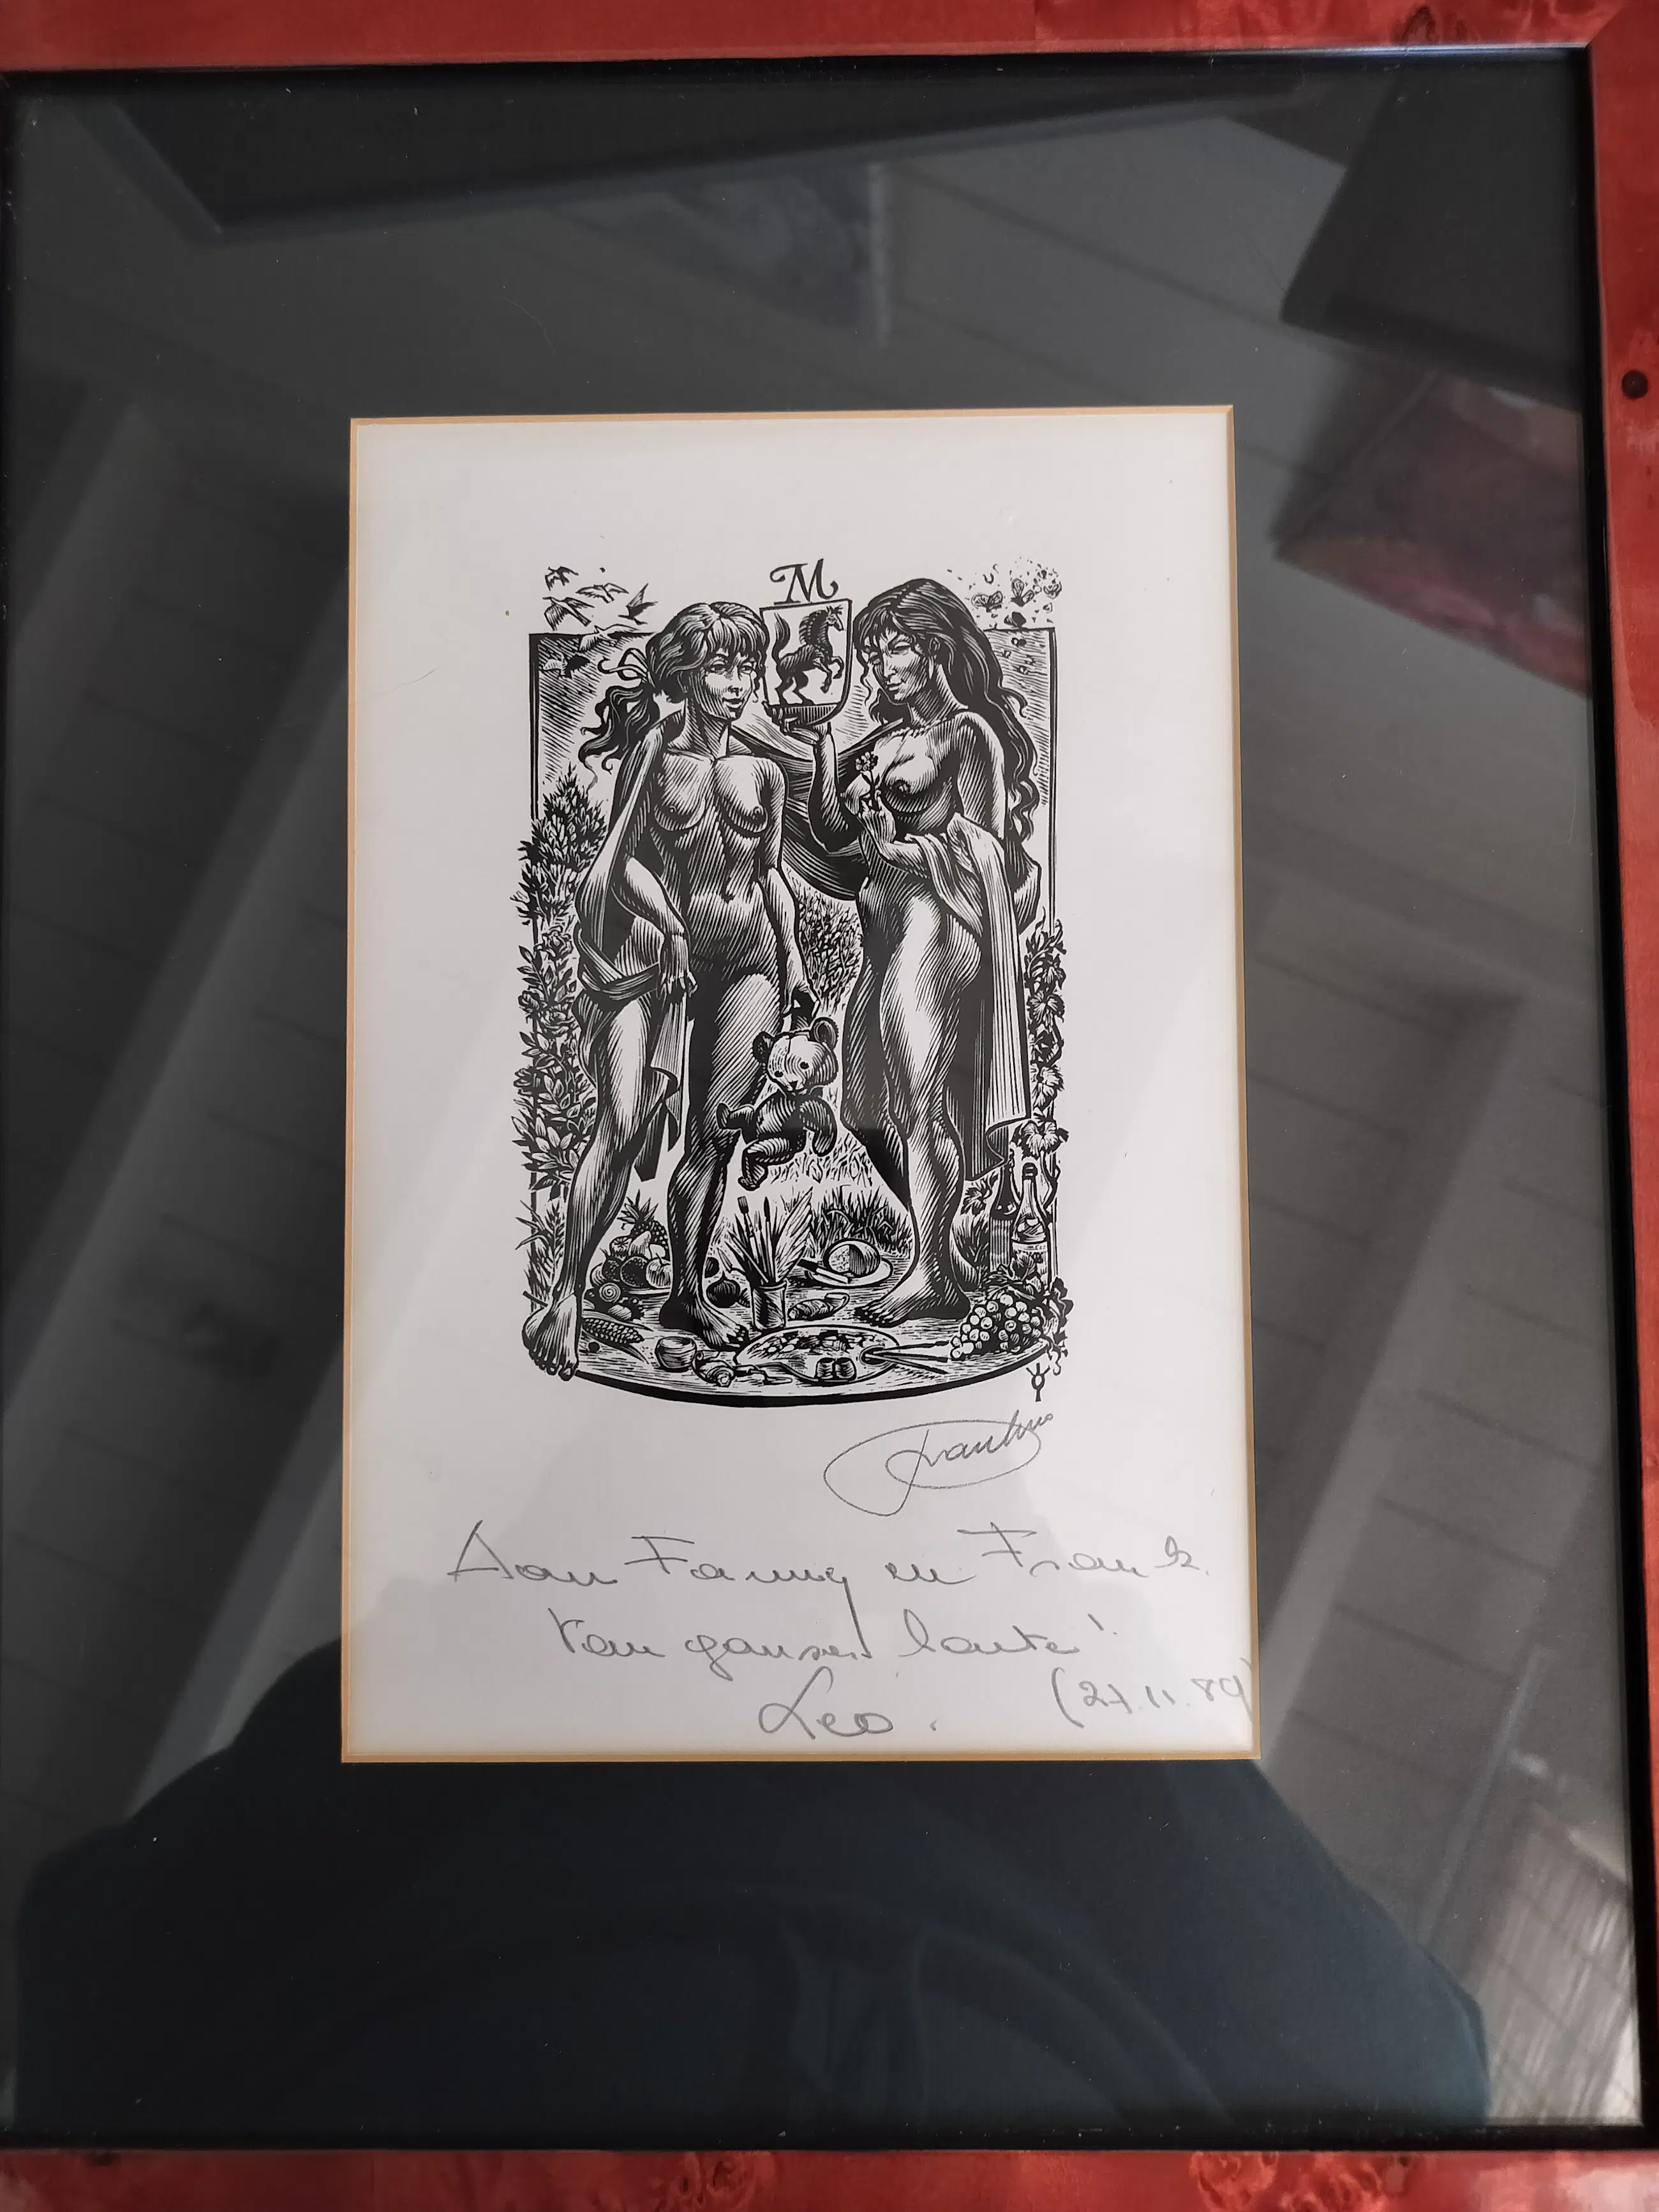 M
Aan Fanny en Frank.
Van ganser harte!
Leo.
(27.11.89)